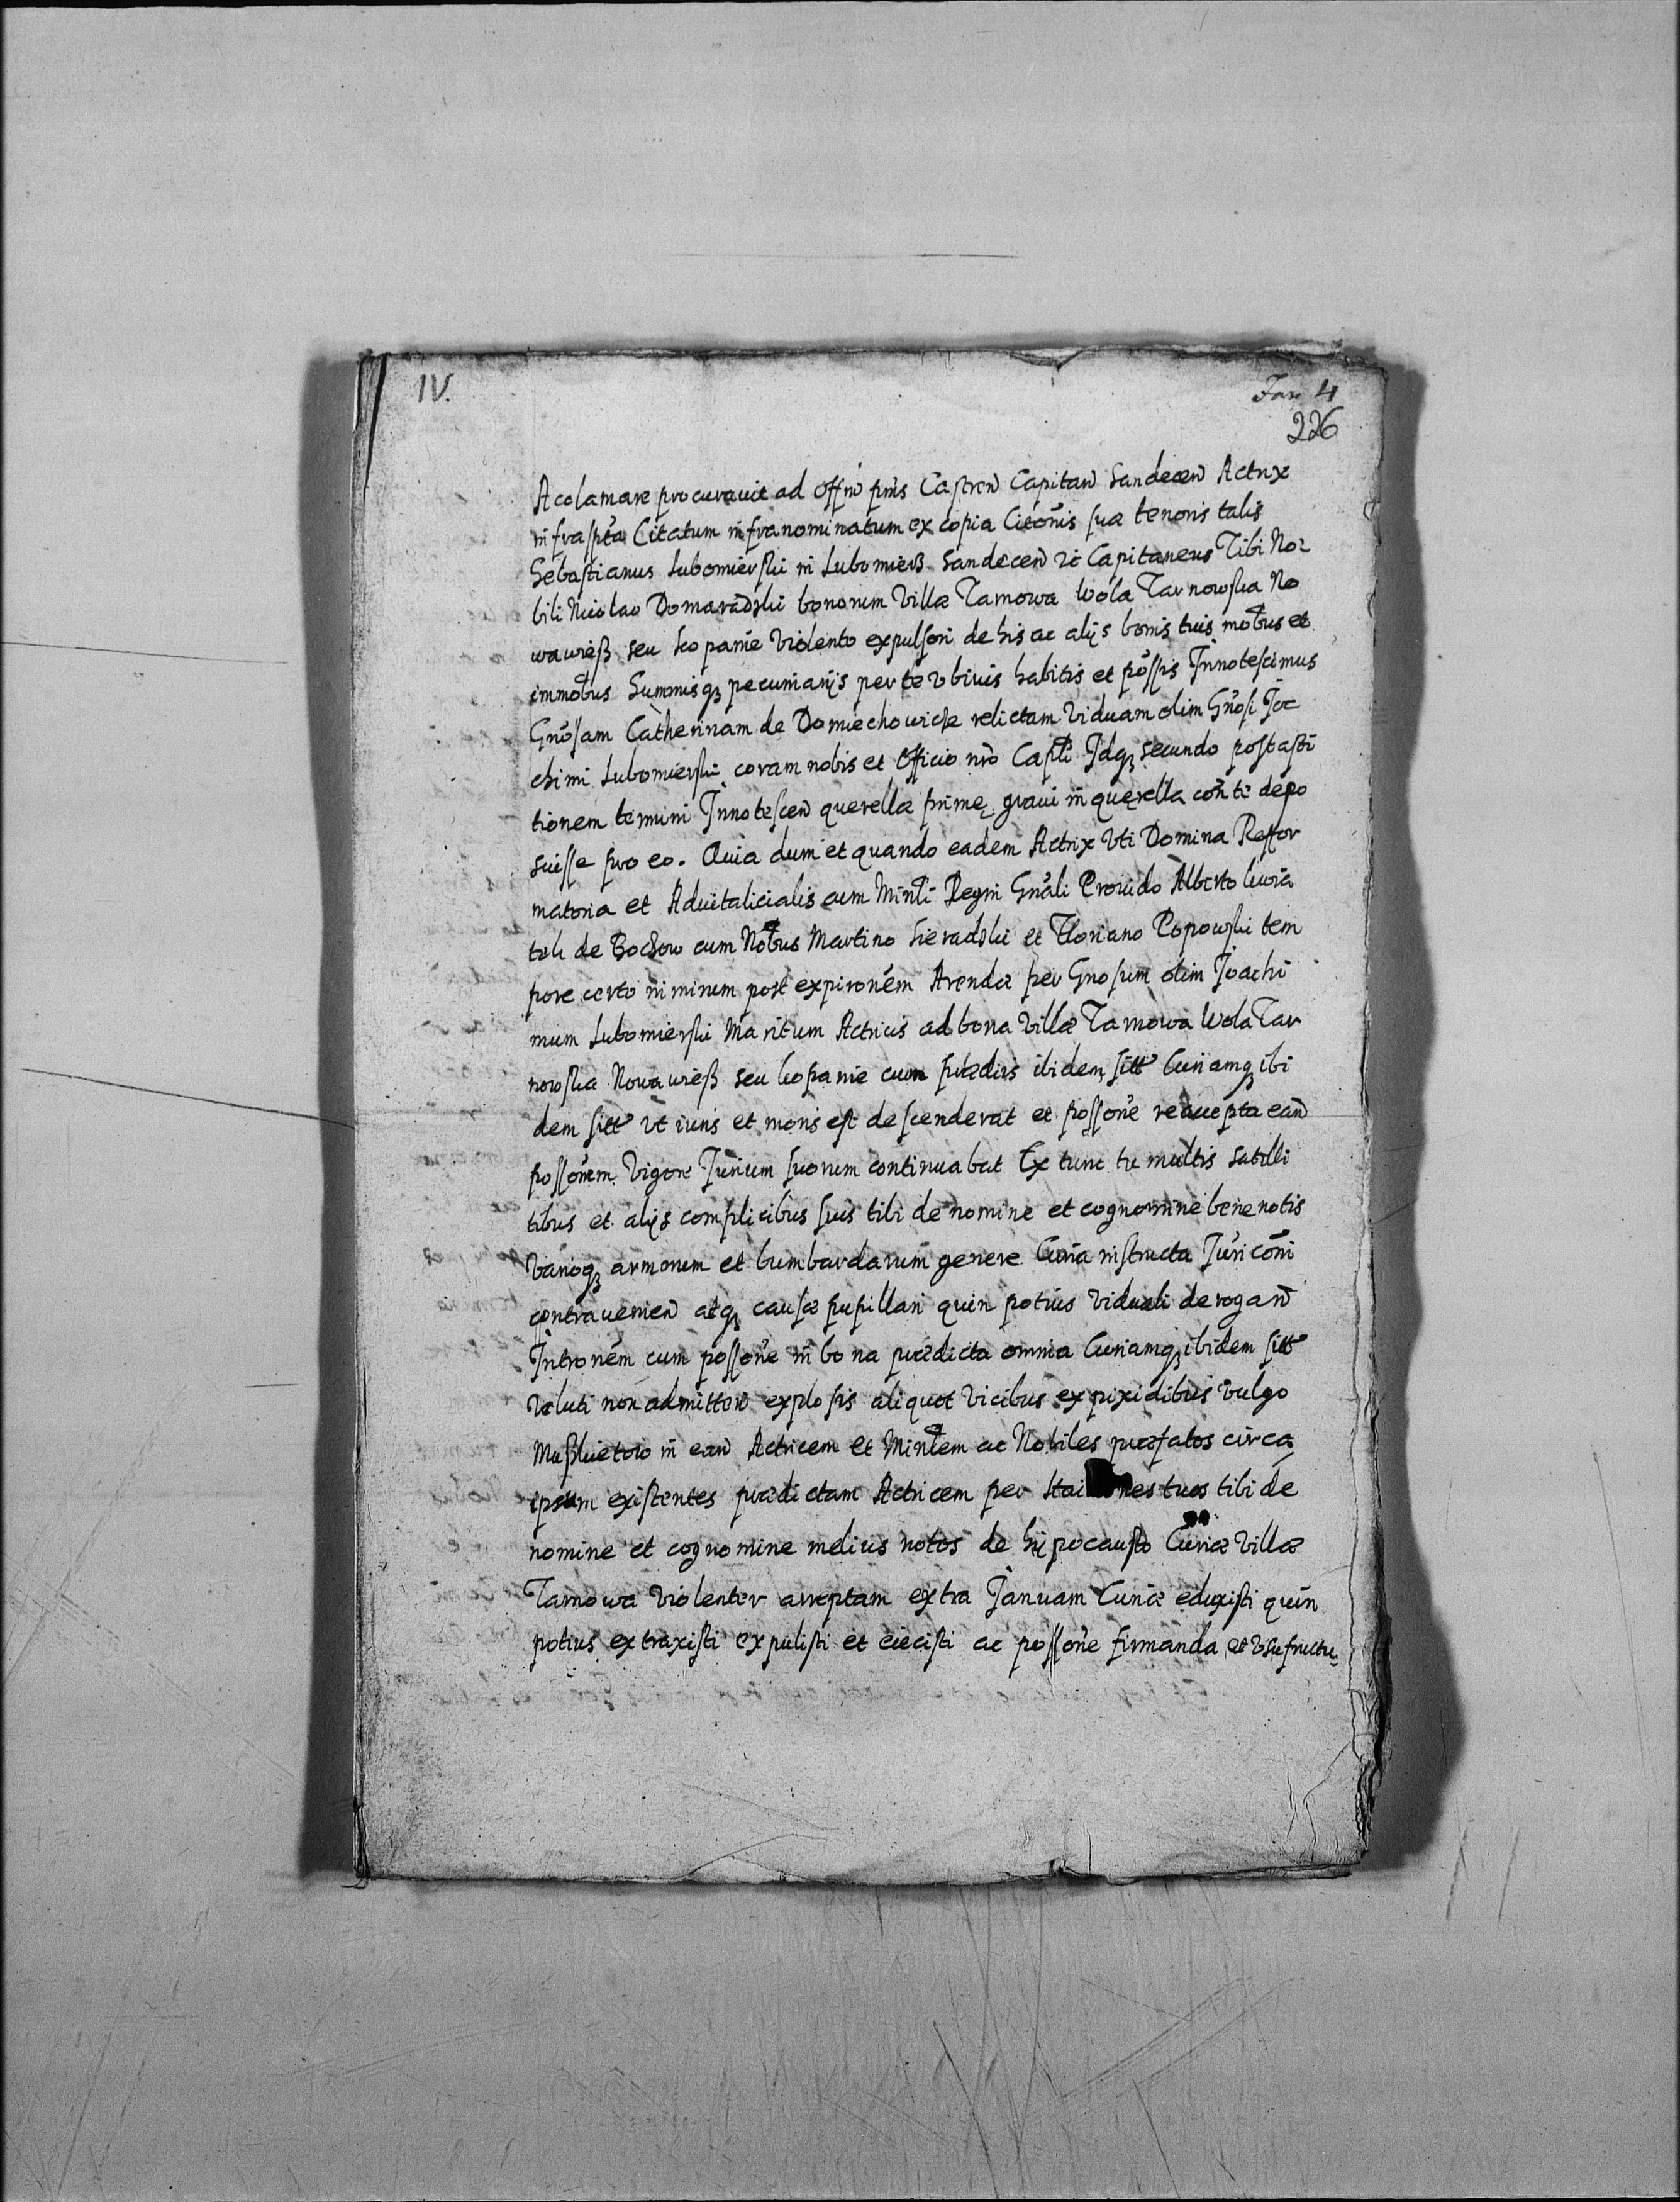 IV.
Fasc 4
226
Acclamare procuravit ad Offiū pñs Castren̄ Capitan̄ Sandecen̄ Actrix
infraspta Citatum infranominatum ex copia Citōnis suæ tenoris talis
Sebastianus Lubomierski in Lubomierz Sandecen̄ zc Capitaneus Tibi No
bili Nicolao Domaradzki bonorum Villæ Tarnowa Wola Tarnowska No
wawieß seu kopanie violento expulsori de his ac alijs bonis tuis mobus et
immobus Summisqȝ pecuniarijs per te vbiuis habitis et possis Innotescimus
Gnosam Catherinam de Domiechowicze relictam Viduam olim Gnosi Joa
chimi Lubomierski coram nobis et Officio nrō Capli Idqȝ secundo post
tionem termini Innotescen̄ querellæ primæ graui in querella con te depo
suisse pro eo. Quia dum et quando eadem Actrix vti Domina Refor
matoria et Aduitalicialis cum Minli Regni Gnali Prouido Alberto
de Bochow cum Nobus Martino Sieradzki et Floriano Popowski tem
pore certo nimirum post expironem Arendæ per Gnosum olim Joachi
mum Lubomierski Maritum Actricis ad bona Villæ Tarnowa Wola Tar
nowska Nowawieß seu kopanie cum prædijs ibidem sitt Curiamqȝ ibi
dem sitt vt iuris et moris est descenderat et possone reaccepta ean̄
possonem vigore Jurium suorum continuabat Ex tunc tu multis satelli
tibus et alijs complicibus suis tibi de nomine et cognomine bene notis
varioqȝ armorum et bumbardarum genere Curia instructa Juri coni
contravenien̄ atqȝ causæ pupillari quin potius viduali derogan̄
Intronem cum possone in bona prædicta omnia Curiamqȝ ibidem sitt
veluti non admitten̄ explosis aliquot vicibus ex pixidibus vulgo
Mußkietow in ean̄ Actricem et Minlem ac Nobiles præfatos circa
ipsam existentes prædictam Actricem per tuos tibi de
nomine et cognomine melius notos de hypocausto Curiæ Villæ
Tarnowa violenter arreptam extra Januam Curiæ eduxisti quin
potius extraxisti expulisti et eiecisti ac possone firmanda et vsufructu